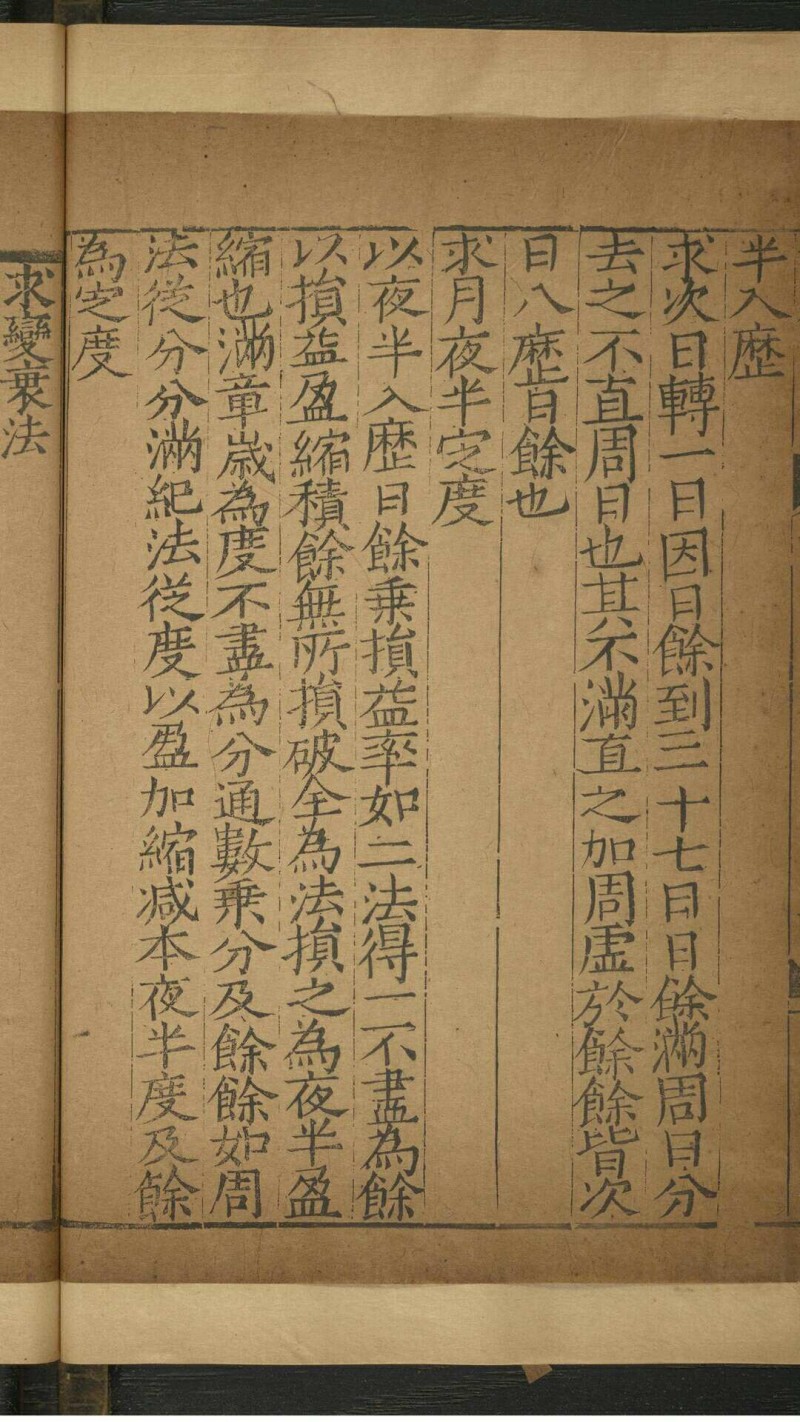 半入歷
求次日轉一日因日餘到三十七日日餘滿周日分
去之不直周日也其不滿直之加周虛於餘餘皆次
日八歷日餘也
求月夜半定度
以夜半入歷日餘乗損益率如二法得一不盡為餘
以損益盈縮積餘無所損破全為法損之為夜半盈
縮也滿章歲為度不盡為分通數乗分及餘餘如周
法從分分滿紀法從度以盈加縮减本夜半度及餘
為定度
求變衰法